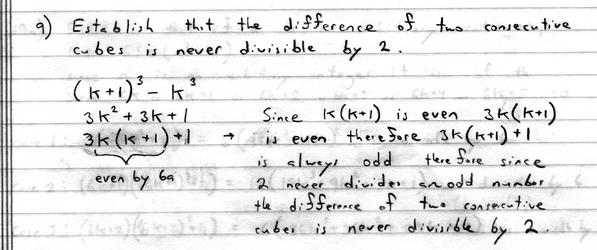 9) Establish that the difference of two consecutive
cubes is never divisible by 2.
(k+1)³ - k³
3k² + 3k + 1
3k(k+1) + 1 →
even by 6a
Since k(k+1) is even 3k(k+1)
is even therefore 3k(k+1) + 1
is always odd therefore since
2 never divides an odd number
the difference of two consecutive
cubes is never divisible by 2.